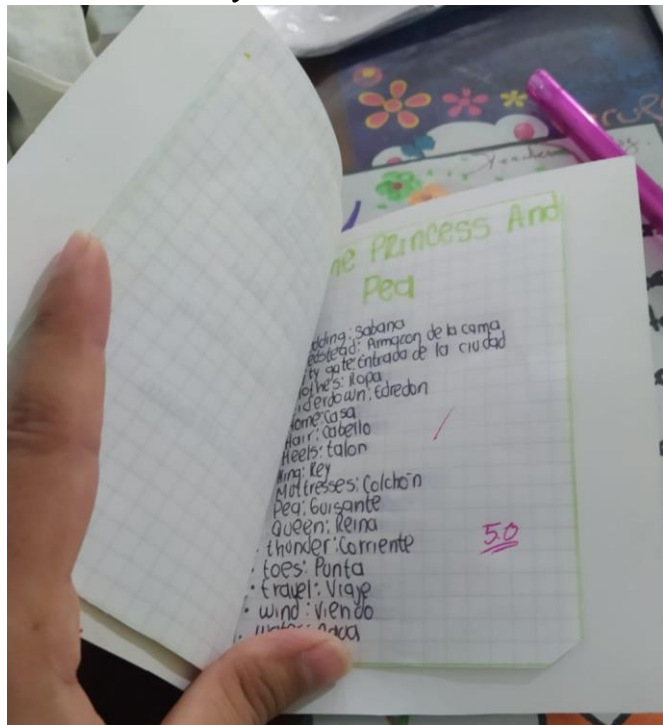 he Princess And
Pea
dding: Sabana
edstead: Armaçon de la cama
ity gate: Entrada de la ciudad
lothe's: Ropa
iderdown: Edredon
ome: Casa
Hair: Cabello
Heels: talon
King: Rey
Mattresses: Colchón
Pea: Guisante
Queen: Reina
thunder: Corriente
toes: Punta
travel: Viaje
wind: viendo
water: Agua
5.0
Teacher